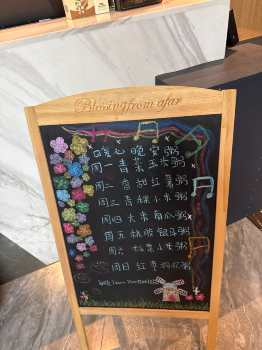 Blessing from afar
暖心晚安粥
周一 青菜玉米粥
周二 香甜红薯粥
周三 青桃小米粥
周四 大米南瓜粥
周五 桃胶银耳粥
周六 板栗小米粥
周日 红枣枸杞粥